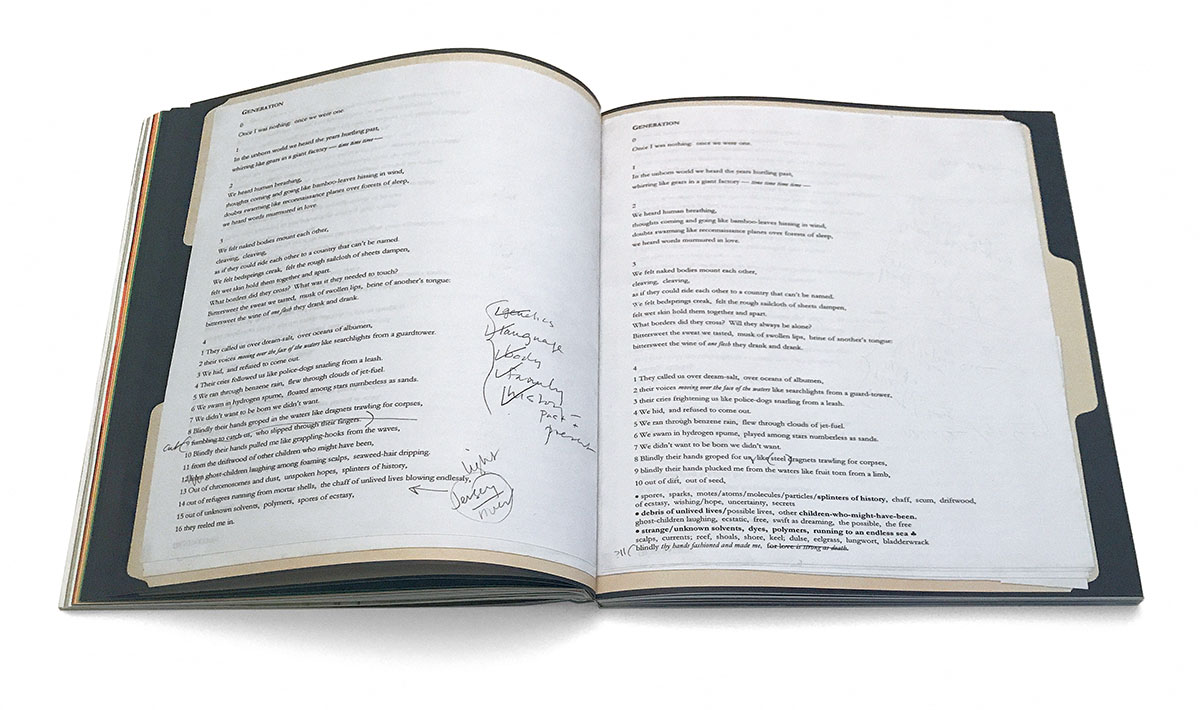 GENERATION
0
Once I was nothing: once we were one.
1
In the unborn world we heard the years hurtling past,
whirring like gears in a giant factory — time time time —
2
We heard human breathing,
thoughts coming and going like bamboo-leaves hissing in wind,
doubts swarming like reconnaissance planes over forests of sleep,
we heard words murmured in love.
3
We felt naked bodies mount each other,
cleaving, cleaving,
as if they could ride each other to a country that can't be named.
We felt bedsprings creak, felt the rough sailcloth of sheets dampen,
felt wet skin hold them together and apart.
What borders did they cross? What was it they needed to touch?
Bittersweet the sweat we tasted, musk of swollen lips, brine of another's tongue:
bittersweet the wine of one flesh they drank and drank.
4
1 They called us over dream-salt, over oceans of albumen,
2 their voices moving over the face of the waters like searchlights from a guardtower.
3 We hid, and refused to come out.
4 Their cries followed us like police-dogs snarling from a leash.
5 We ran through benzene rain, flew through clouds of jet-fuel.
6 We swam in hydrogen spume, floated among stars numberless as sands.
7 We didn't want to be born we didn't want.
8 Blindly their hands groped in the waters like dragnets trawling for corpses,
cut 9 fumbling to catch us, who slipped through their fingers.
10 Blindly their hands pulled me like grappling-hooks from the waves,
11 from the driftwood of other children who might have been,
12 ghost-children laughing among foaming scalps, seaweed-hair dripping.
13 Out of chromosomes and dust, unspoken hopes, splinters of history,
14 out of refugees running from mortar shells, the chaff of unlived lives blowing endlessly,
15 out of unknown solvents, polymers, spores of ecstasy,
16 they reeled me in.
genetics
language
body
family
history –
past +
present
light
Jersey
river
GENERATION
0
Once I was nothing: once we were one.
1
In the unborn world we heard the years hurtling past,
whirring like gears in a giant factory — time time time time —
2
We heard human breathing,
thoughts coming and going like bamboo-leaves hissing in wind,
doubts swarming like reconnaissance planes over forests of sleep,
we heard words murmured in love.
3
We felt naked bodies mount each other,
cleaving, cleaving,
as if they could ride each other to a country that can't be named.
We felt bedsprings creak, felt the rough sailcloth of sheets dampen,
felt wet skin hold them together and apart.
What borders did they cross? Will they always be alone?
Bittersweet the sweat we tasted, musk of swollen lips, brine of another's tongue:
bittersweet the wine of one flesh they drank and drank.
4
1 They called us over dream-salt, over oceans of albumen,
2 their voices moving over the face of the waters like searchlights from a guard-tower,
3 their cries frightening us like police-dogs snarling from a leash.
4 We hid, and refused to come out.
5 We ran through benzene rain, flew through clouds of jet-fuel.
6 We swam in hydrogen spume, played among stars numberless as sands.
7 We didn't want to be born we didn't want.
8 Blindly their hands groped for us like steel dragnets trawling for corpses,
9 blindly their hands plucked me from the waters like fruit torn from a limb,
10 out of dirt, out of seed,
• spores, sparks, motes/atoms/molecules/particles/splinters of history, chaff, scum, driftwood,
of ecstasy, wishing/hope, uncertainty, secrets
• debris of unlived lives/possible lives, other children-who-might-have-been.
ghost-children laughing, ecstatic, free, swift as dreaming, the possible, the free
• strange/unknown solvents, dyes, polymers, running to an endless sea ♣
scalps, currents; reef, shoals, shore, keel; dulse, eelgrass, lungwort, bladderwrack
blindly thy hands fashioned and made me, for love is strong as death.